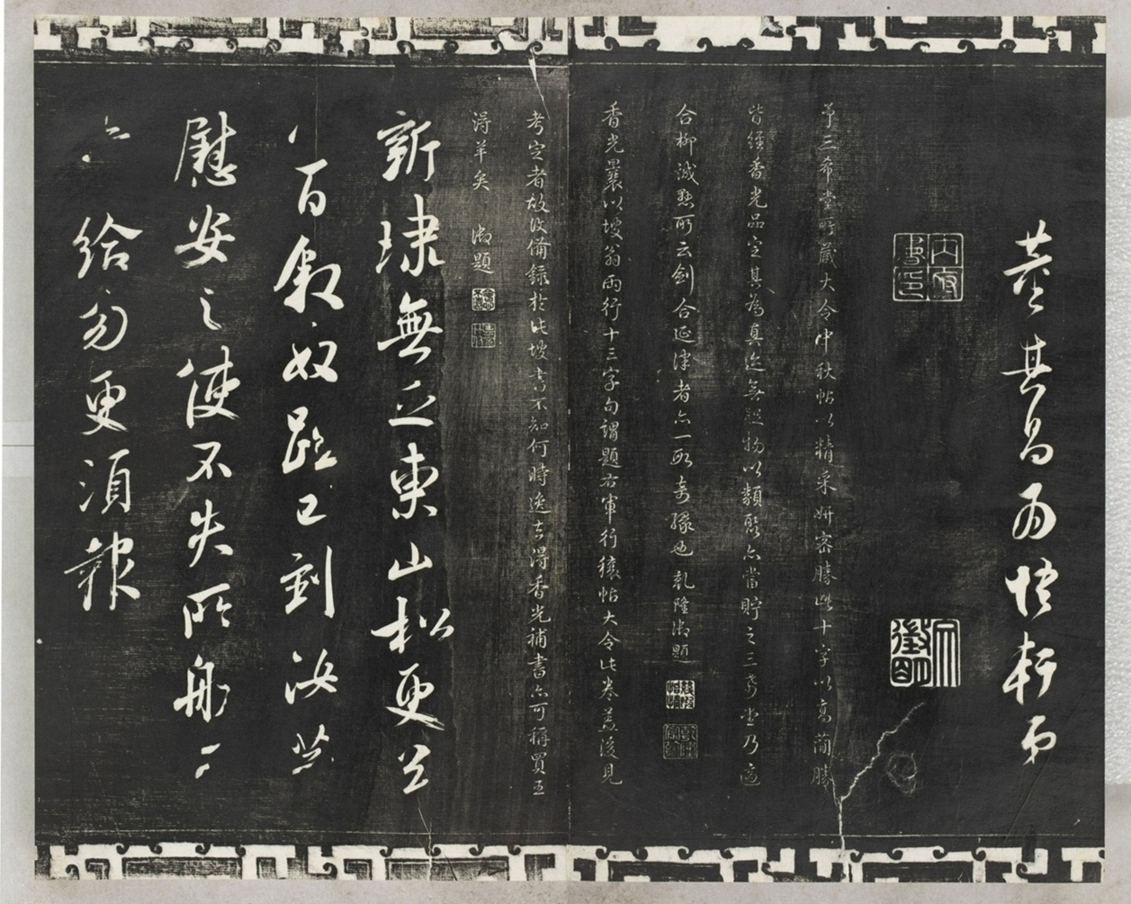 董其昌為悟軒
內府書印
予三希堂所藏大令中秋帖以精采妍密勝此十字以高簡勝
皆經香光品定其為真迹無疑物以類聚亦當貯之三希堂乃適
合柳誠懸所云劍合延津者亦一段奇緣也乾隆御題
香光曩以坡翁兩行十三字句謂題右軍行穰帖大令此卷蓋後見
考定者故備錄於此坡書不知何時逸去得香光補書亦可稱買王
得羊矣 御題
新埭無乏東山松更送
八百敘奴已到汝等
慰安之使不失所
給勿更須報